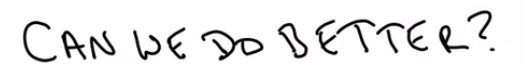 CAN WE DO BETTER?